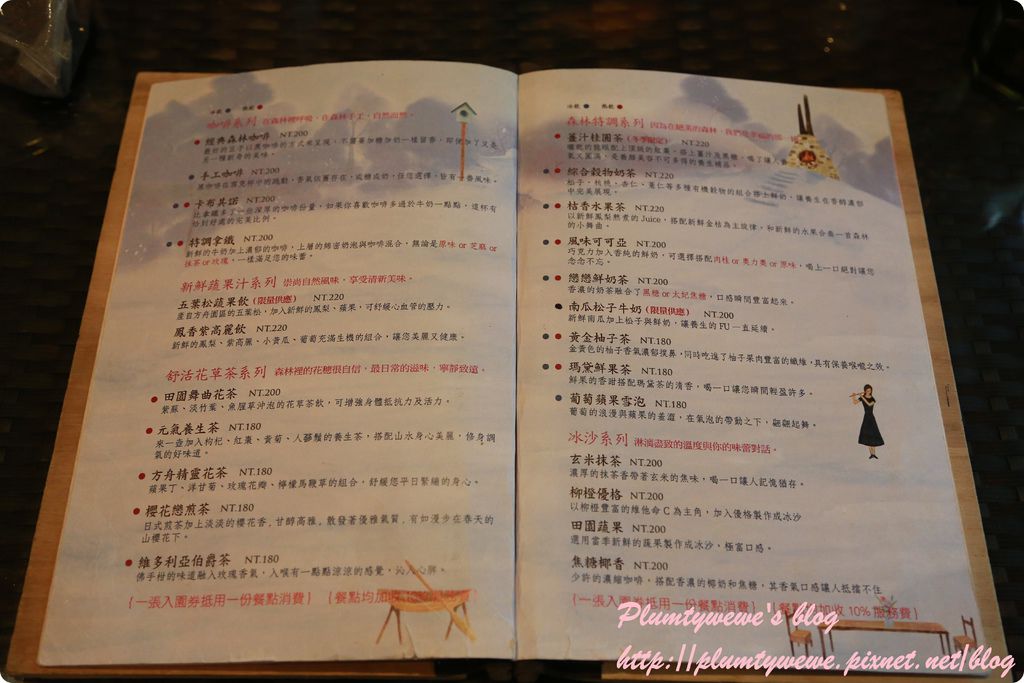 冷飲 ● 熱飲 ●
咖啡系列 在森林裡呼吸，在森林手工，自然而然。
經典森林咖啡 NT.200
最好的豆子以黑咖啡的方式來呈現，不需要加糖加奶一樣留香，即使加了又是
另一種創奇的美味。
手工咖啡 NT.200
卡布其諾 NT.200
比拿鐵多了一些深厚的咖啡份量，如果你喜歡咖啡多過於牛奶一點點，這杯有
恰到好處的完美比例。
特調拿鐵 NT.200
新鮮的牛奶加上濃郁的咖啡，上層的綿密奶泡與咖啡混合，無論是原味 or 芝麻 or
抹茶 or 玫瑰，一樣滿足您的味蕾。
新鮮蔬果汁系列 崇尚自然風味，享受清新美味。
五葉松蔬果飲（限量供應） NT.220
產自方舟園區的五葉松，加入新鮮的鳳梨、蘋果，可紓緩心血管的壓力。
鳳香紫高麗飲 NT.220
新鮮的鳳梨、紫高麗、小黃瓜、葡萄充滿生機的組合，讓您美麗又健康。
舒活花草茶系列 森林裡的花穗很自信，最日常的滋味，寧靜致遠。
田園舞曲花茶 NT.200
紫蘇、淡竹葉、魚腥草沖泡的花草茶飲，可增強身體抵抗力及活力。
元氣養生茶 NT.180
來一壺加入枸杞、紅棗、黃菊、人蔘鬚的養生茶，搭配山水身心美麗，修身調
氣的好味道。
方舟精靈花茶 NT.180
蘋果丁、洋甘菊、玫瑰花瓣、檸檬馬鞭草的組合，舒緩您平日緊繃的身心。
櫻花戀煎茶 NT.180
日式煎茶加上淡淡的櫻花香，甘醇高雅，散發著優雅氣質，有如漫步在春天的
山櫻花下。
維多利亞伯爵茶 NT.180
佛手柑的味道融入玫瑰香氣，入喉有一點點涼涼的感覺，沁人心脾。
{一張入園券抵用一份餐點消費} {餐點均加收10%服務費}
冷飲 ● 熱飲 ●
森林特調系列 因為在絕美的森林，我們是幸福的那一
薑汁桂圓茶（冬季限定） NT.220
綜合穀物奶茶 NT.220
松子、核桃、杏仁、薏仁等多種有機穀物的組合搭上鮮奶，讓養生在香醇濃郁
中完美展現。
桔香水果茶 NT.220
以新鮮鳳梨熬煮的 Juice，搭配新鮮金桔為主旋律，和新鮮的水果合奏一首森林
的小舞曲。
風味可可亞 NT.200
巧克力加入香純的鮮奶，可選擇搭配肉桂 or 奧力奧 or 原味，喝上一口絕對讓您
念念不忘。
戀戀鮮奶茶 NT.200
香濃的奶茶融合了黑糖 or 太妃焦糖，口感瞬間豐富起來。
南瓜松子牛奶（限量供應） NT.200
新鮮南瓜加上松子與鮮奶，讓養生的 FU 一直延續。
黃金柚子茶 NT.180
金黃色的柚子香氣濃郁撲鼻，同時吃進了柚子果肉豐富的纖維，具有保養喉嚨之效。
瑪黛鮮果茶 NT.180
鮮果的香甜搭配瑪黛茶的清香，喝一口讓您瞬間輕盈許多。
葡萄蘋果雪泡 NT.180
葡萄的浪漫與蘋果的羞澀，在氣泡的帶動之下，翩翩起舞。
冰沙系列 淋漓盡致的溫度與你的味蕾對話。
玄米抹茶 NT.200
濃厚的抹茶香帶著玄米的焦味，喝一口讓人記憶猶存。
柳橙優格 NT.200
以柳橙豐富的維他命 C 為主角，加入優格製作成冰沙
田園蔬果 NT.200
選用當季新鮮的蔬果製作成冰沙、極富口感。
焦糖椰香 NT.200
少許的濃縮咖啡，搭配香濃的椰奶和焦糖，其香氣口感讓人抵擋不住
{一張入園券抵用一份餐點消費} {餐點均加收 10% 服務費}
Plumtywewe's blog
http://plumtywewe.pixnet.net/blog